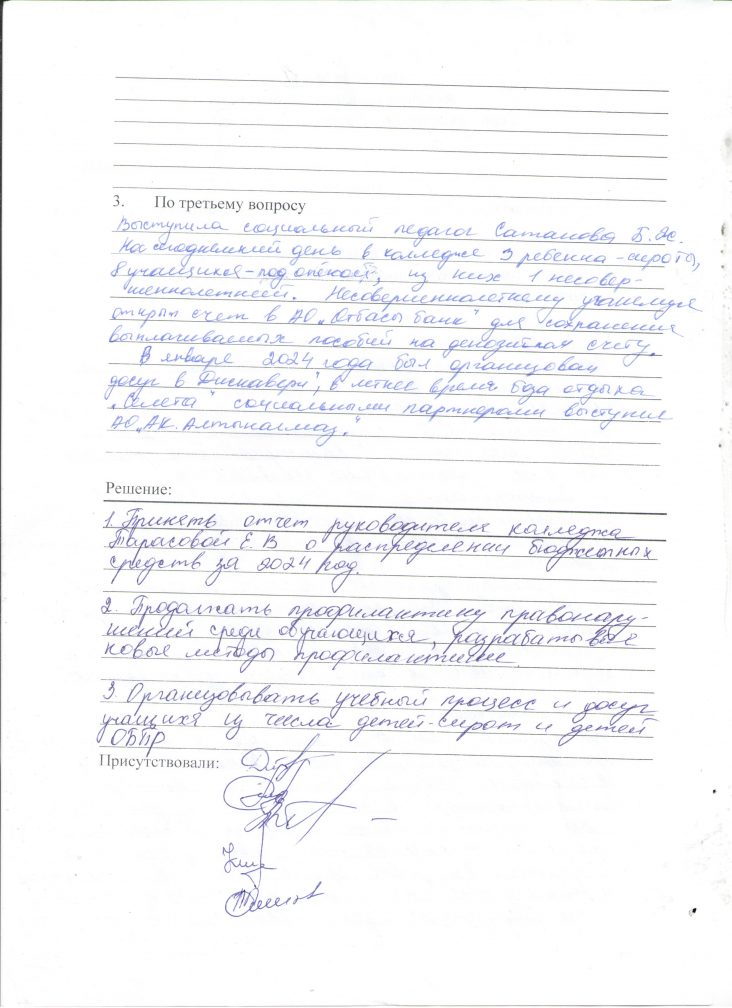 3. По третьему вопросу
Выступила социальный педагог Сатанова Б.Ж.
На сегодняшний день в колледже 3 ребенка-сироты,
8 учащихся-под опекой, из них 1 несовер-
шеннолетней. Несовершеннолетнему учащемуся
открыт счет в АО „Отбасы банк" для сохранения
выплачиваемых пособий на депозитном счету.
В январе 2024 года был организован
досуг в Дискавери", в летнее время база отдыха
„Селета" социальными партнерами выступил
АО „АК. Алтыналмаз."
Решение:
1. Принять отчет руководителя колледжа
Тарасовой Е.В о распределении бюджетных
средств за 2024 год.
2. Продолжать профилактику правонару-
шений среди обучающихся, разрабатывая
новые методы профилактики.
3. Организовывать учебный процесс и досуг
учащихся из числа детей-сирот и детей
ОБПР
Присутствовали: